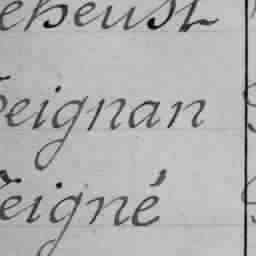 eheust
eignan
eigné